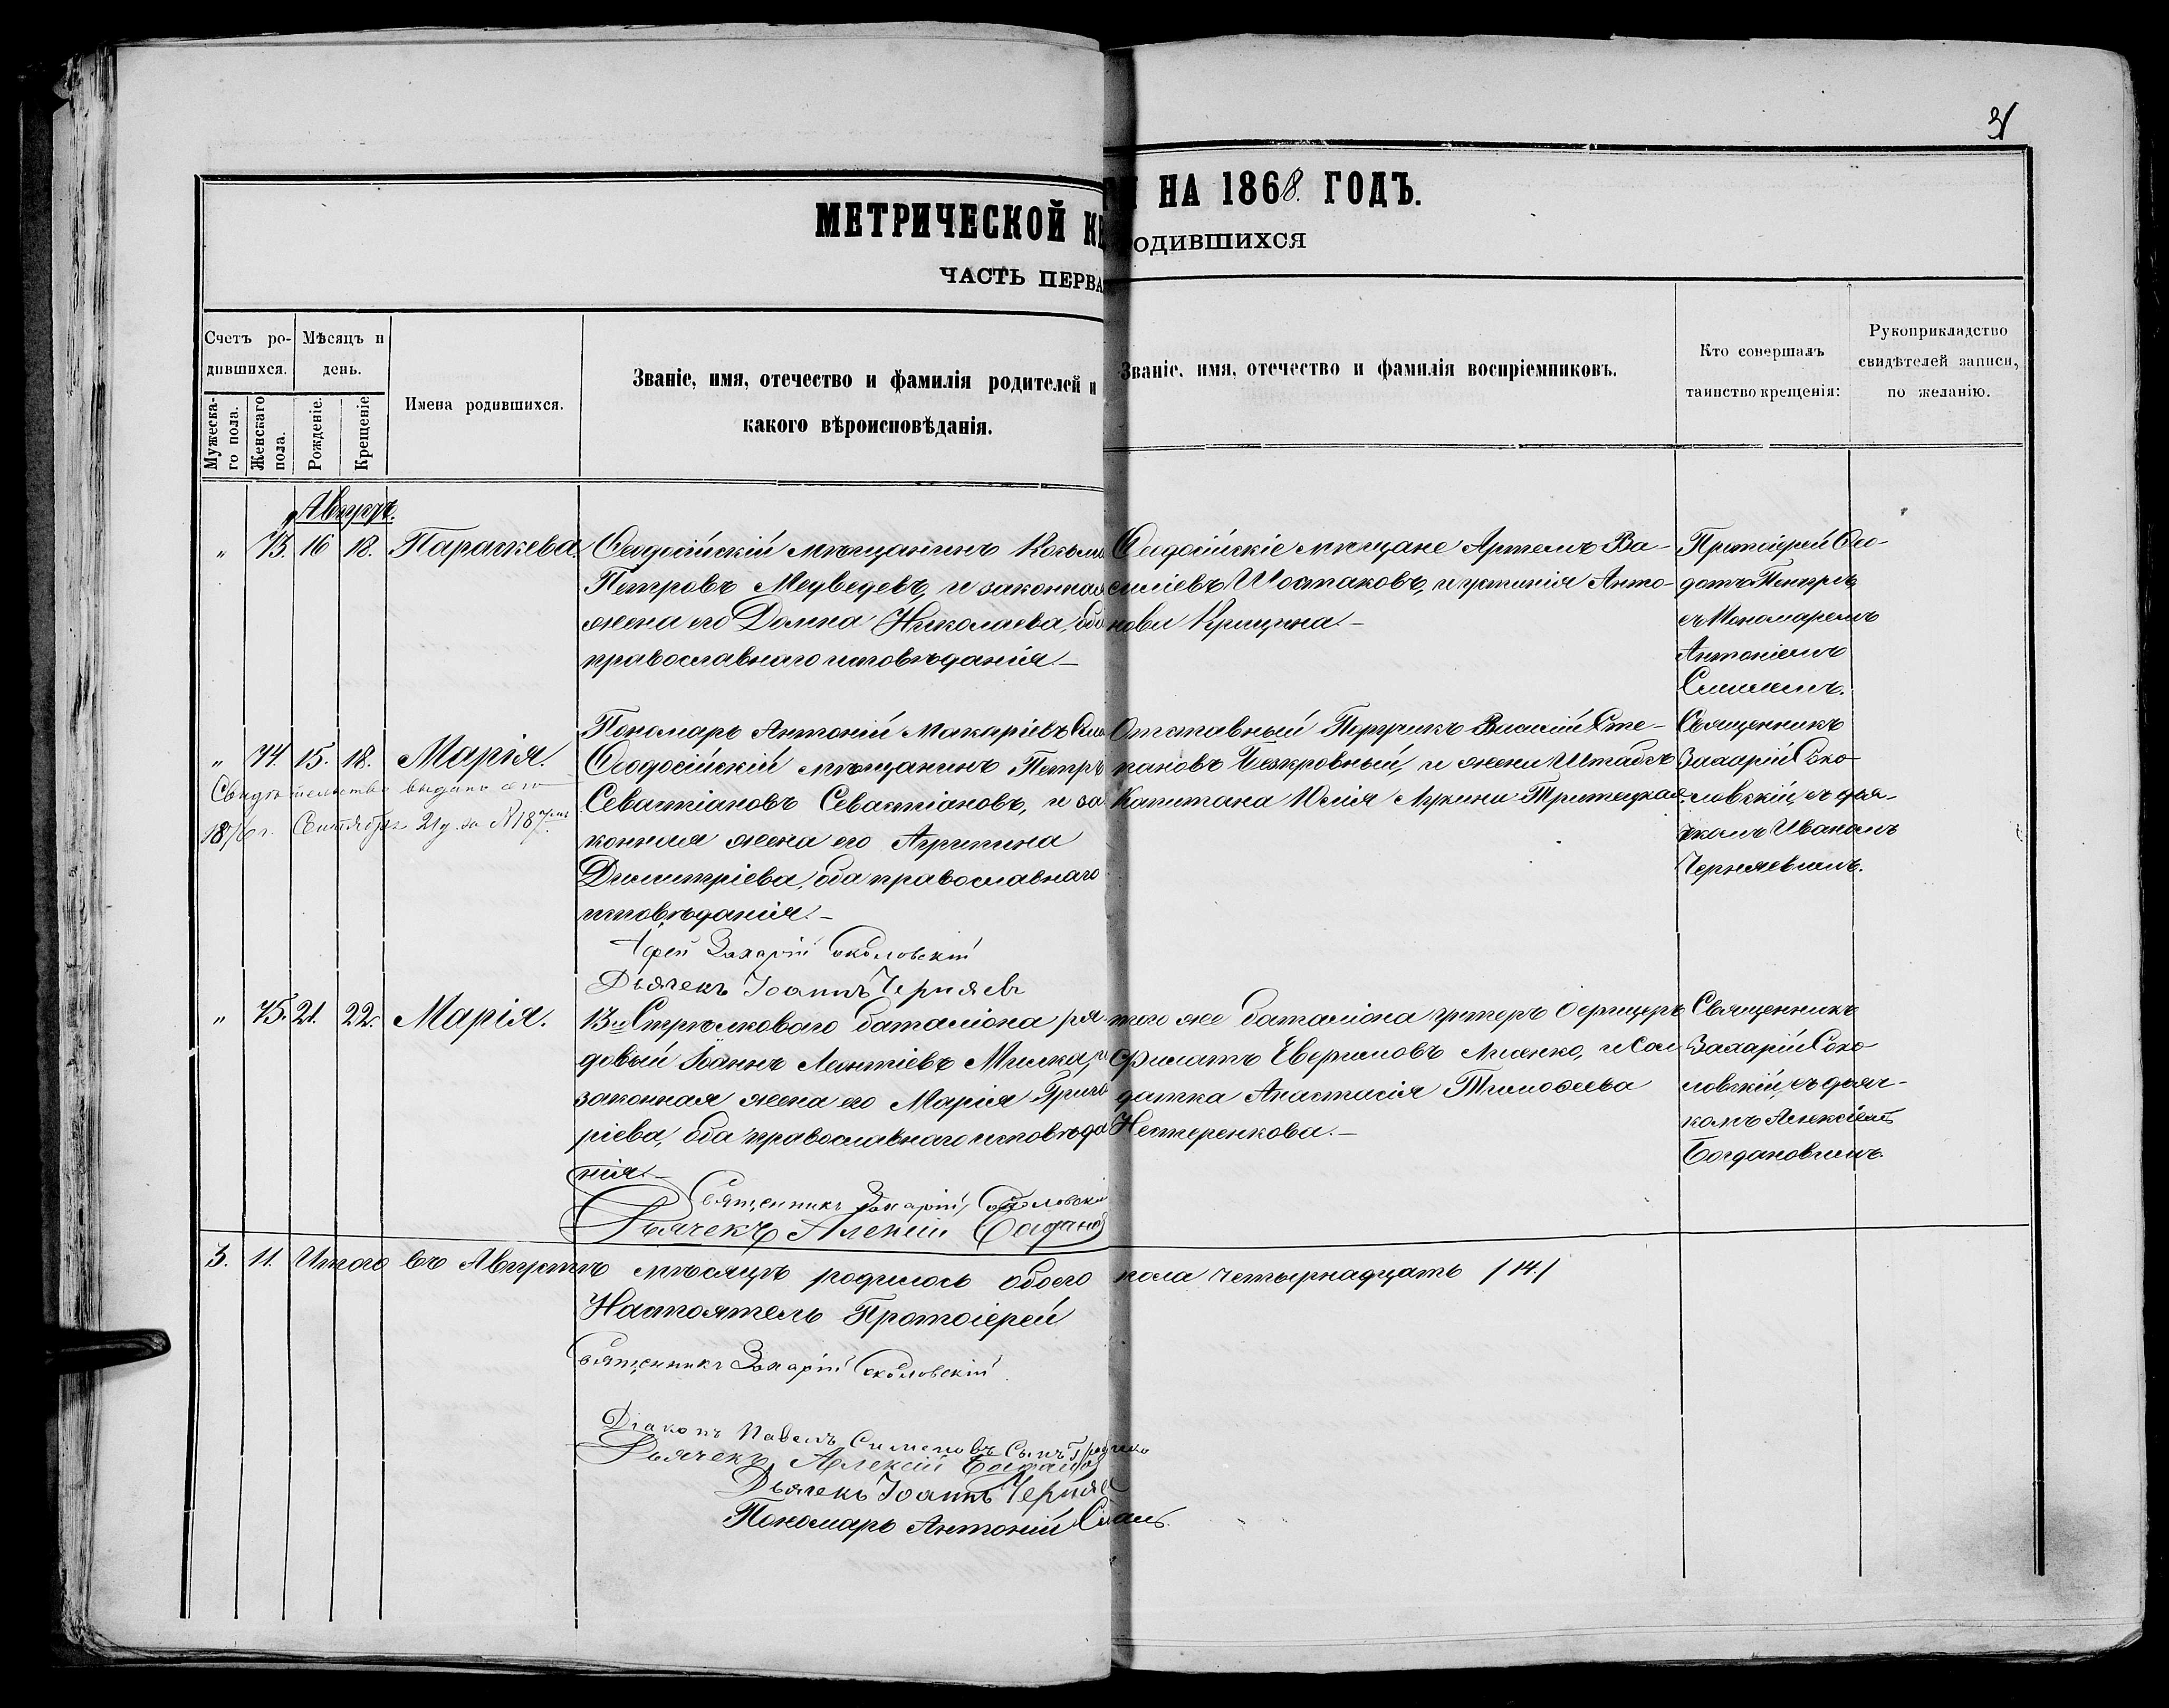 31
МЕТРИЧЕСКОЙ КН
ГИ НА 1868. ГОДЪ.
ЧАСТЬ ПЕРВА
ОДИВШИХСЯ
Счетъ ро-
дившихся.
Мужеска-
го пола.
Женскаго
пола.
Мѣсяцъ и
день.
Рожденіе.
Крещеніе
Имена родившихся.
Званіе, имя, отечество и фамилія родителей и
какого вѣроисповѣданія.
Званіе, имя, отечество и фамилія воспріемниковъ.
Кто совершалъ
таинство крещенія:
Рукоприкладство
свидѣтелей записи,
по желанію.
Августъ.
„ 73. 16 18. Параскева.
Ѳеодосійскій мѣщанинъ Козьма
Петровъ Медведевъ, и законная
жена его Домна Николаева, оба
православнаго исповѣданія.–
Пономарь Антоній Макаріевъ
Ѳеодосійскіе мѣщане Артемъ Ва-
силіевъ Шостаковъ, и Устинія Анто-
нова Крицина.–
Протоіерей Ѳео-
дотъ
съ Пономаремъ
Антоніемъ
„ 74. 15. 18. Марія.
Свидѣтельство выдано
1876 г. Сентября 21 д. за № 187
Ѳеодосійскій мѣщанинъ Петръ
Севастіановъ Севастіановъ, и за
конная жена его Агрипина
Димитріева, оба православнаго
исповѣданія.–
Іерей Захарій Соколовскій
Дьячекъ Іоаннъ Черняев
Отставный Поручикъ Василій Сте-
пановъ Безкровный, и жена Штабсъ
Капитана Юлія Лукина
Священникъ
Захарій Соко-
ловскій, съ дья-
чкомъ Иваномъ
Черняевымъ.
„ 75. 21. 22. Марія.
13го Стрѣлковаго баталіона ря-
довый Іоаннъ Леонтіевъ Милка, и
законная жена его Марія Григо
ріева, оба православнаго исповѣда
нія.–
Священникъ Захарій Соколовскій
Дьячекъ Алексій Богданов
того же баталіона унтеръ Офицеръ
Филатъ Евфимовъ Лисенко, и Сол
датка Анастасія Тимоѳеева
Нестеренкова.–
Священникъ
Захарій Соко
ловскій, съ дьяч-
комъ Алексіемъ
Богдановымъ.
3. 11. Итого въ Августѣ мѣсяцѣ родилось обоего пола четырнадцать /14./
Настоятель Протоіерей
Священникъ Захарій Соколовскій
Діаконъ Павелъ Симеоновъ Сынъ
Дьячекъ Алексій Богданов
Дьячекъ Іоаннъ Черняев
Пономарь Антоній